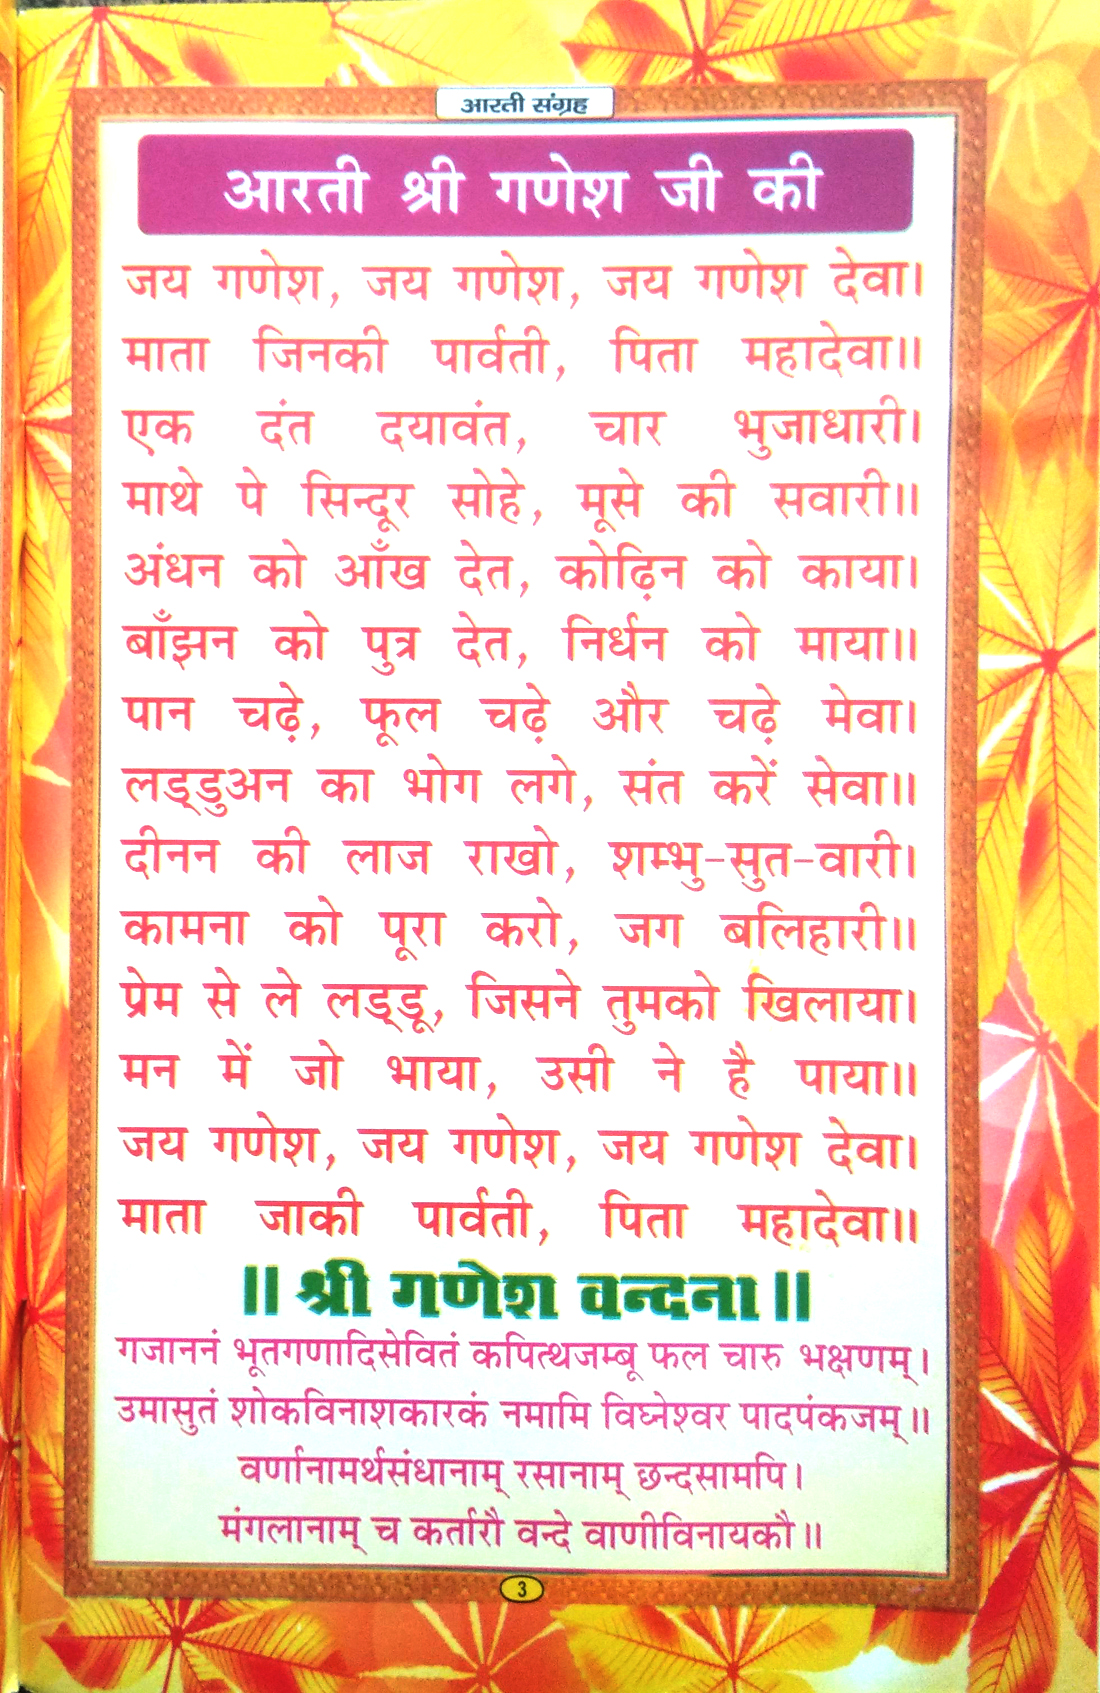 आरती संग्रह
आरती श्री गणेश जी की
जय गणेश, जय गणेश, जय गणेश देवा।
माता जिनकी पार्वती, पिता महादेवा॥
एक दंत दयावंत, चार भुजाधारी।
माथे पे सिन्दूर सोहे, मूसे की सवारी॥
अंधन को आँख देत, कोढ़िन को काया।
बाँझन को पुत्र देत, निर्धन को माया॥
पान चढ़े, फूल चढ़े और चढ़े मेवा।
लड्डुअन का भोग लगे, संत करें सेवा॥
दीनन की लाज राखो, शम्भु-सुत-वारी।
कामना को पूरा करो, जग बलिहारी॥
प्रेम से ले लड्डू, जिसने तुमको खिलाया।
मन में जो भाया, उसी ने है पाया॥
जय गणेश, जय गणेश, जय गणेश देवा।
माता जाकी पार्वती, पिता महादेवा॥
॥ श्री गणेश वन्दना ॥
गजाननं भूतगणादिसेवितं कपित्थजम्बू फल चारु भक्षणम्।
उमासुतं शोकविनाशकारकं नमामि विघ्नेश्वर पादपंकजम्॥
वर्णानामर्थसंधानाम् रसानाम् छन्दसामपि।
मंगलानाम् च कर्तारौ वन्दे वाणीविनायकौ॥
3